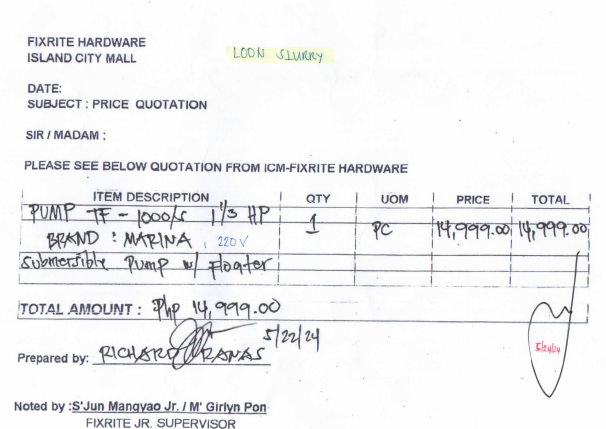 FIXRITE HARDWARE
ISLAND CITY MALL
LOON SLURRY
DATE:
SUBJECT : PRICE QUOTATION
SIR / MADAM :
PLEASE SEE BELOW QUOTATION FROM ICM-FIXRITE HARDWARE
ITEM DESCRIPTION QTY UOM PRICE TOTAL
PUMP TF - 1000/S 1 1/3 HP 1 PC 14,999.00 14,999.00
BRAND : MARINA , 220V
Submersible Pump w/ Floater
TOTAL AMOUNT : Php 14,999.00
5/22/24
5/24/24
Prepared by: RICHARD RANAS
Noted by :S'Jun Mangyao Jr. / M' Girlyn Pon
FIXRITE JR. SUPERVISOR